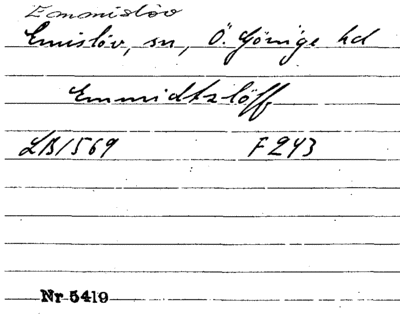 Emmislöv
Emislöv, sn, Ö. Göinge hd
Emmidtzlöff
LB1569 F243
Nr 5419